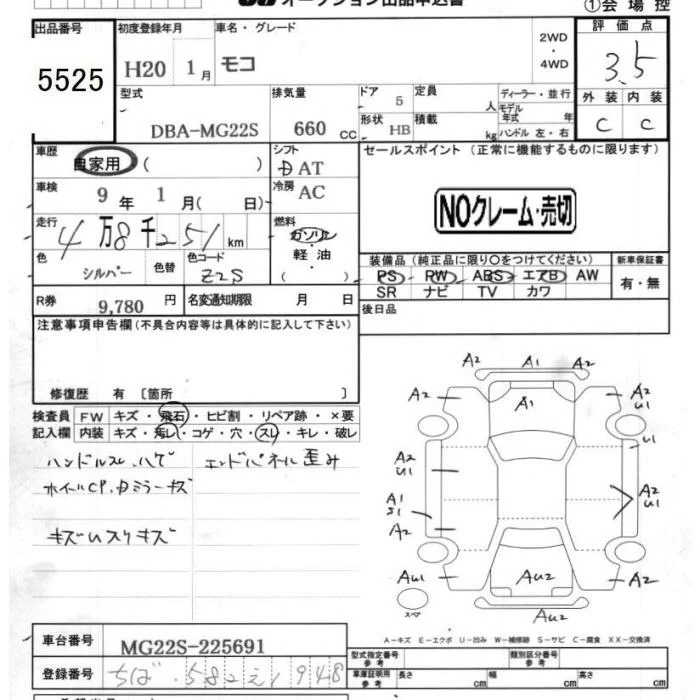 オークション出品申込書
①会場控
出品番号 初度登録年月 車名・グレード 2WD・4WD 評価点
5525 H20 1月 モコ 3.5
型式 排気量 ドア 5 定員 人 ディーラー・並行
DBA-MG22S 660 CC 形状 HB 積載 kg モデル年式 年 ハンドル 左・右
外装 内装
C C
車歴 自家用 ( ) シフト DAT
セールスポイント (正常に機能するものに限ります)
車検 9年 1月( 日) 冷房 AC
NOクレーム・売切
走行 4万8千251km 燃料 ガソリン・軽油 ( )
色 シルバー 色替 色コード Z2S
装備品 (純正品に限り○をつけてください) 新車保証書
PS PW ABS エアB AW 有・無
SR ナビ TV カワ
R券 9,780 円 名変通知期限 月 日
後日品
注意事項申告欄 (不具合内容等は具体的に記入して下さい)
修復歴 有 〔箇所 〕
検査員記入欄
FW キズ・飛石・ヒビ割・リペア跡・×要
内装 キズ・汚レ・コゲ・穴・スレ・キレ・破レ
ハンドルスレ、ハゲ エンドパネル歪み
ホイルCP.Dミラーキズ
キズUスリキズ
A2 A1 A2
A2 A1 A2 U1
U1
A2 U1
A2 U1
A1 S1
A2
AU1 AU2 A2
スペア AU2
A-キズ E-エクボ U-凹み W-補修跡 S-サビ C-腐食 XX-交換済
車台番号 MG22S-225691
型式指定番号 参考 類別区分番号 参考
登録番号 ちば 582 え 1948
車庫証明用 参考 長さ cm 幅 cm 高さ cm